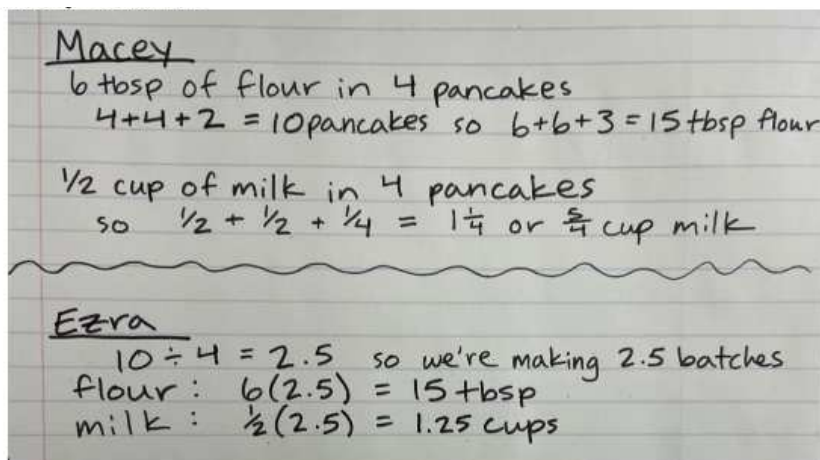 Macey
6 tbsp of flour in 4 pancakes
4+4+2 = 10 pancakes so 6+6+3 = 15 tbsp flour
1/2 cup of milk in 4 pancakes
so 1/2 + 1/2 + 1/4 = 1 1/4 or 5/4 cup milk
Ezra
10 ÷ 4 = 2.5 so we're making 2.5 batches
flour: 6(2.5) = 15 tbsp
milk: 1/2(2.5) = 1.25 cups